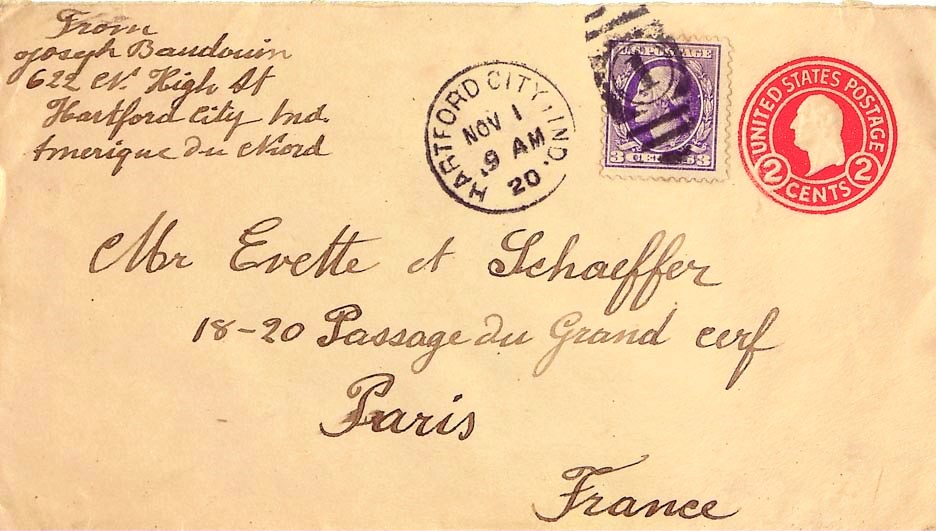 From
Joseph Baudouin
622 N. High St
Hartford City Ind.
Amerique du Nord
HARTFORD CITY, IND.
NOV 1
9 AM
20
U.S. POSTAGE
3 CENTS 3
UNITED STATES POSTAGE
2 CENTS 2
Mr Evette et Schaeffer
18-20 Passage du Grand cerf
Paris
France